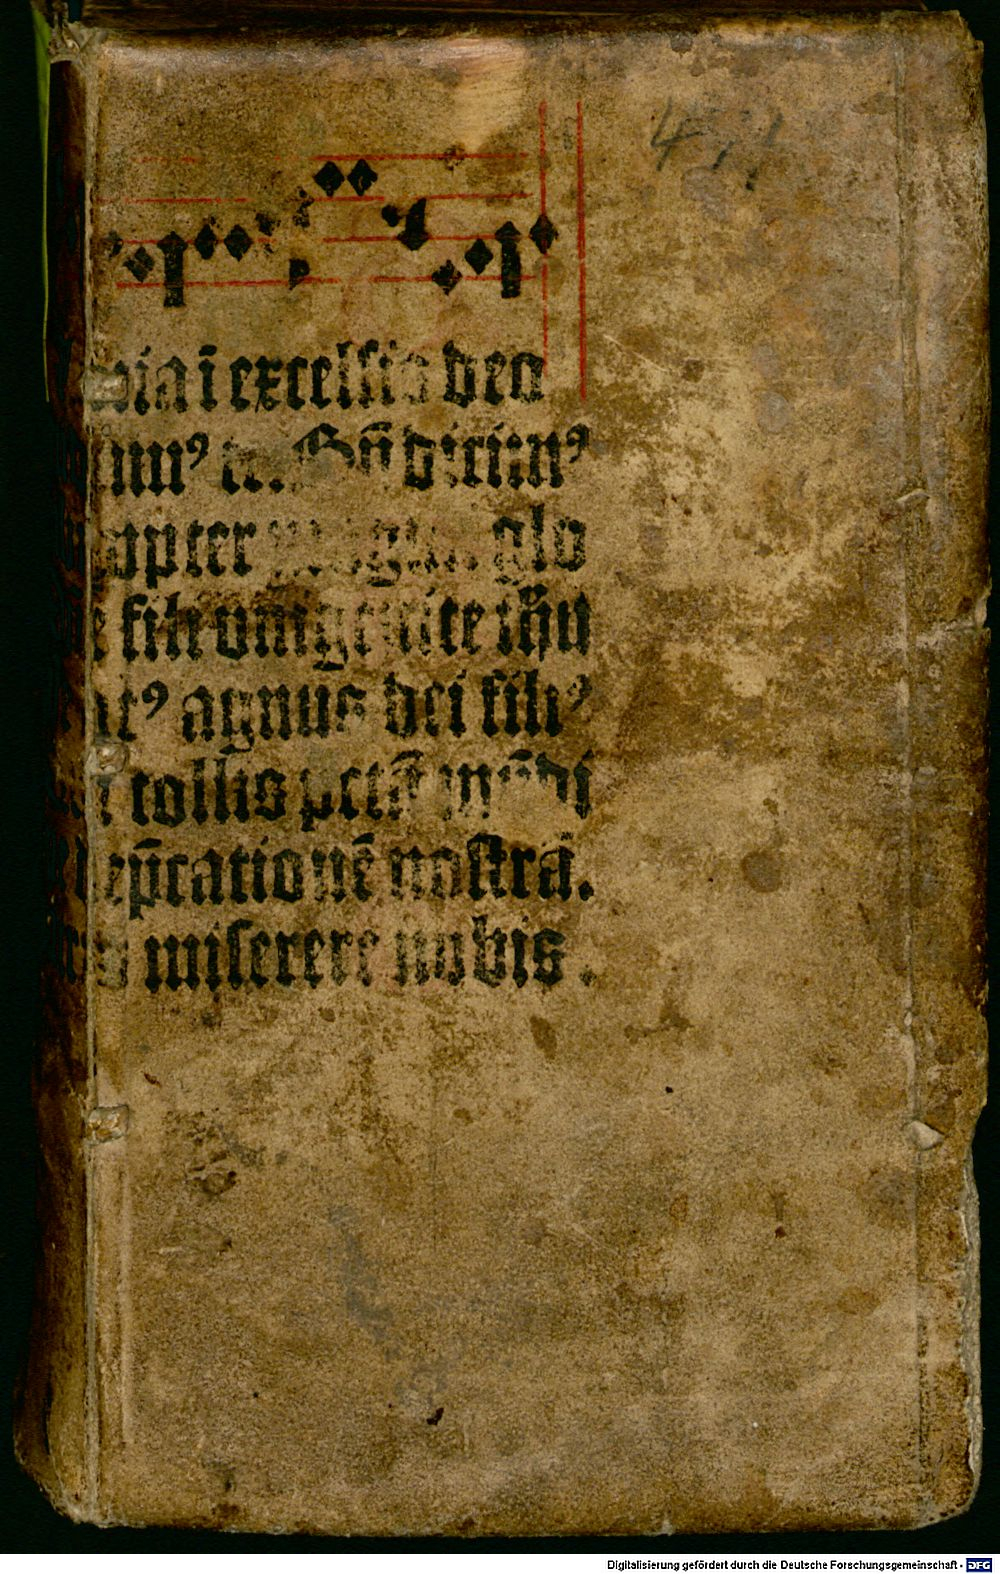 471
ria ī excelsis deo
mus⁹ te. Bn̄dicim⁹
propter magnā glo
e fili vnigenite ihū
at⁹ agnus dei fili⁹
qui tollis pctā mūdi
dep̄cationē nostrā.
tris miserere nobis.
Digitalisierung gefördert durch die Deutsche Forschungsgemeinschaft - DFG